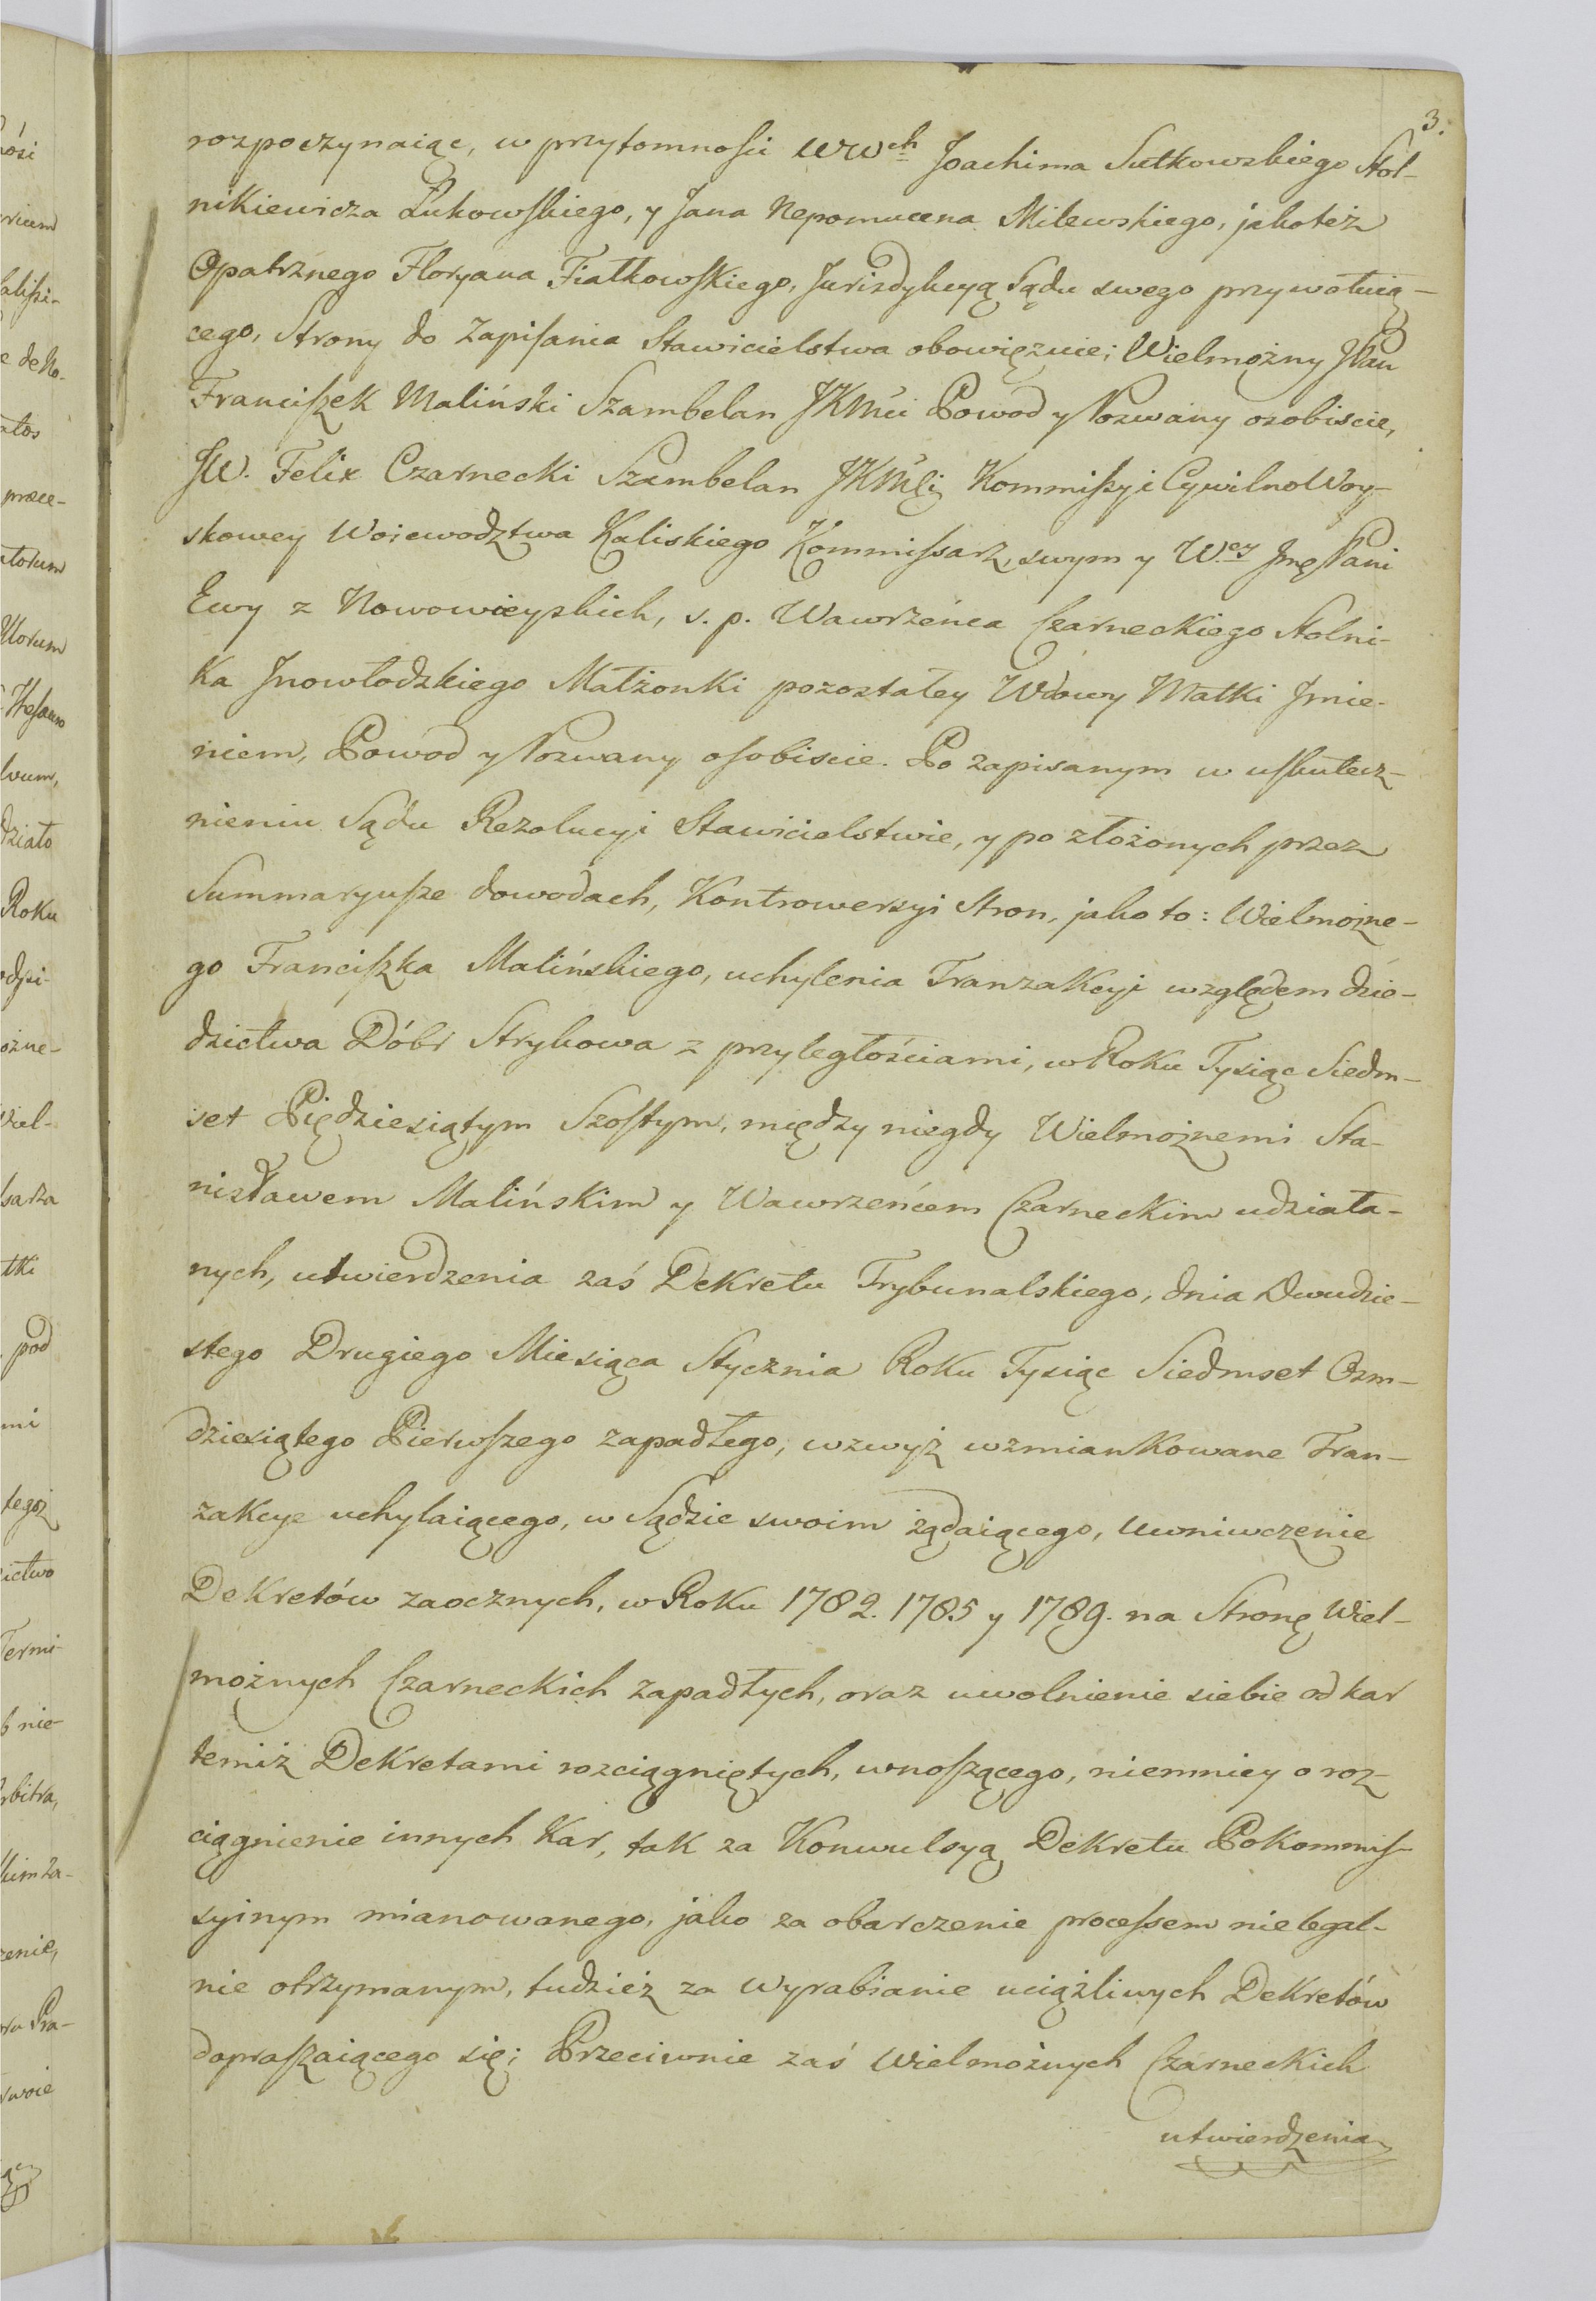 3.
rozpoczynaiąc, w przytomności WW^ch Joachima Sutkowskiego Stol-
nikiewicza Łukowskiego, y Jana Nepomucena Milewskiego, jakoteż
Opatrznego Floryana Fiałkowskiego, Jurisdykcyą Sądu swego przywołuią-
cego, Strony do Zapisania Stawicielstwa obowięzuie; Wielmożny JPan
Franciszek Maliński Szambelan JKMci Powod y Pozwany osobiscie,
JW. Felix Czarnecki Szambelan JKMci Kommissyi CywilnoWoy-
skowey Woiewodztwa Kaliskiego Kommissarz, swym y W.ey Jmę Pani
Ewy z Nowowieyskich, s. p. Wawrzeńca Czarneckiego Stolni-
ka Jnowłodzkiego Małżonki pozostałey Wdowy Matki Jmie-
niem, Powod y Pozwany osobiscie. Po zapisanym w uskutecz-
nieniu Sądu Rezolucyi Stawicielstwie, y po złożonych przez
Summaryusze dowodach, Kontrowersyi Stron, jako to: Wielmożne-
go Franciszka Malińskiego, uchylenia Tranzakcyi względem dzie-
dzictwa Dóbr Strykowa z przyległościami, w Roku Tysiąc Siedm-
set Pięćdziesiątym Szostym, między niegdy Wielmożnemi Sta-
nisławem Malińskim y Wawrzeńcem Czarneckim udziała-
nych, utwierdzenia zaś Dekretu Trybunalskiego, dnia Dwudzie-
stego Drugiego Miesiąca Stycznia Roku Tysiąc Siedmset Osm-
dziesiątego Pierwszego zapadłego, wzwyż wzmiankowane Tran-
zakcye uchylaiącego, w Sądzie swoim żądaiącego, uwniwczenie
Dekretów zaocznych, w Roku 1782. 1785 y 1789. na Stronę Wiel-
możnych Czarneckich zapadłych, oraz uwolnienie siebie od kar
temiż Dekretami rozciągniętych, wnoszącego, niemniey o roz-
ciągnienie innych Kar, tak za Konwulsyą Dekretu Pokommis-
syinym mianowanego, jako za obarczenie processem nielegal-
nie otrzymanym, tudzież za wyrabianie uciążliwych Dekretów
dopraszaiącego się; Przeciwnie zaś Wielmożnych Czarneckich
utwierdzenia